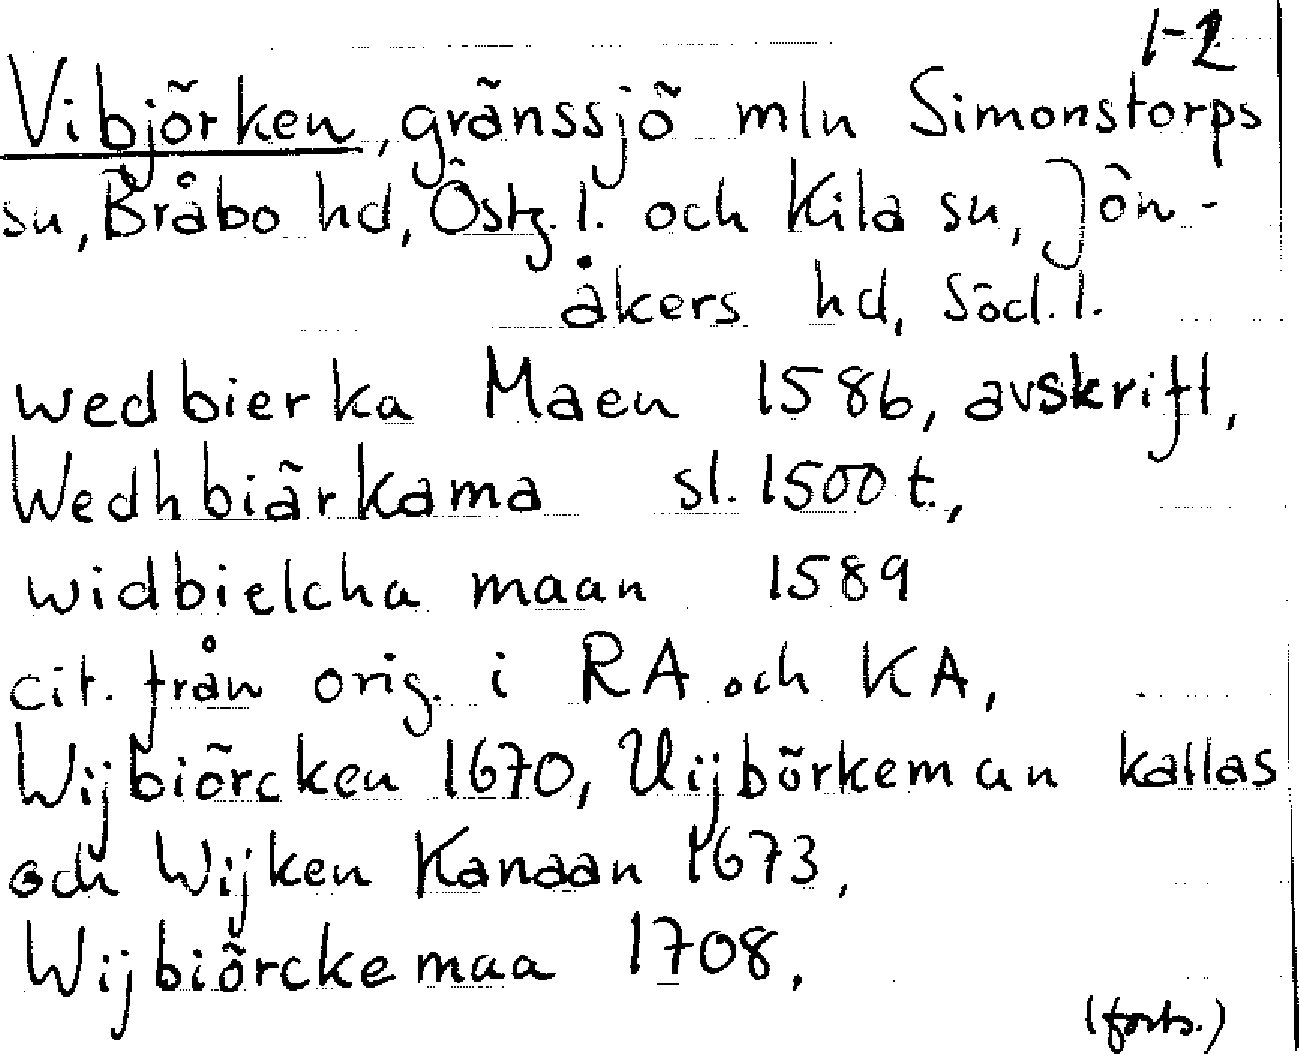 1-2
Vibjörken, gränssjö mln Simonstorps
sn, Bråbo hd, Östg. l. och Kila sn, Jön-
åkers hd, Söd. l.
wedbierka Maen 1586, avskrift,
Wedhbiärkama sl. 1500 t.,
widbielcha maan 1589
cit. från orig. i RA och KA,
Wijbiörcken 1670, Uijbörkeman kallas
och Wijken Kanaan 1673,
Wijbiörckemaa 1708.
(forts.)